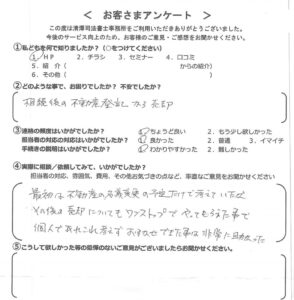 ＜ お客さまアンケート ＞
この度は清澤司法書士事務所をご利用いただきありがとうございました。
今後のサービス向上のため、お客様のご意見・ご感想をお聞かせください。
①私どもを何で知りましたか？（○をつけてください）
1．HP　2．チラシ　3．セミナー　4．口コミ
5．紹 介（　　　からの紹介）
6．その他（　　　）
②どのような事で、お困りでしたか？ 不安でしたか？
相続後の不動産登記から売却
③連絡の頻度はいかがでしたか？　1．ちょうど良い　2．もう少し欲しかった
担当者の対応の対応はいかがでしたか？　1．良かった　2．普通　3．イマイチ
手続きの説明はいかがでしたか？　1．わかりやすかった　2．難しかった
④実際に相談／依頼してみて、いかがでしたか？
担当者の対応、雰囲気、費用、その他お気づきの点など、率直なご意見をお聞かせください
最初は不動産の名義変更の予定だけで考えていたが
その後の売却についてもワンストップでやってもらえた事で
個人であれこれ考えず おまかせできた事は非常に助かった
⑤こうして欲しかった等の忌憚のないご意見がございましたらお聞かせください。